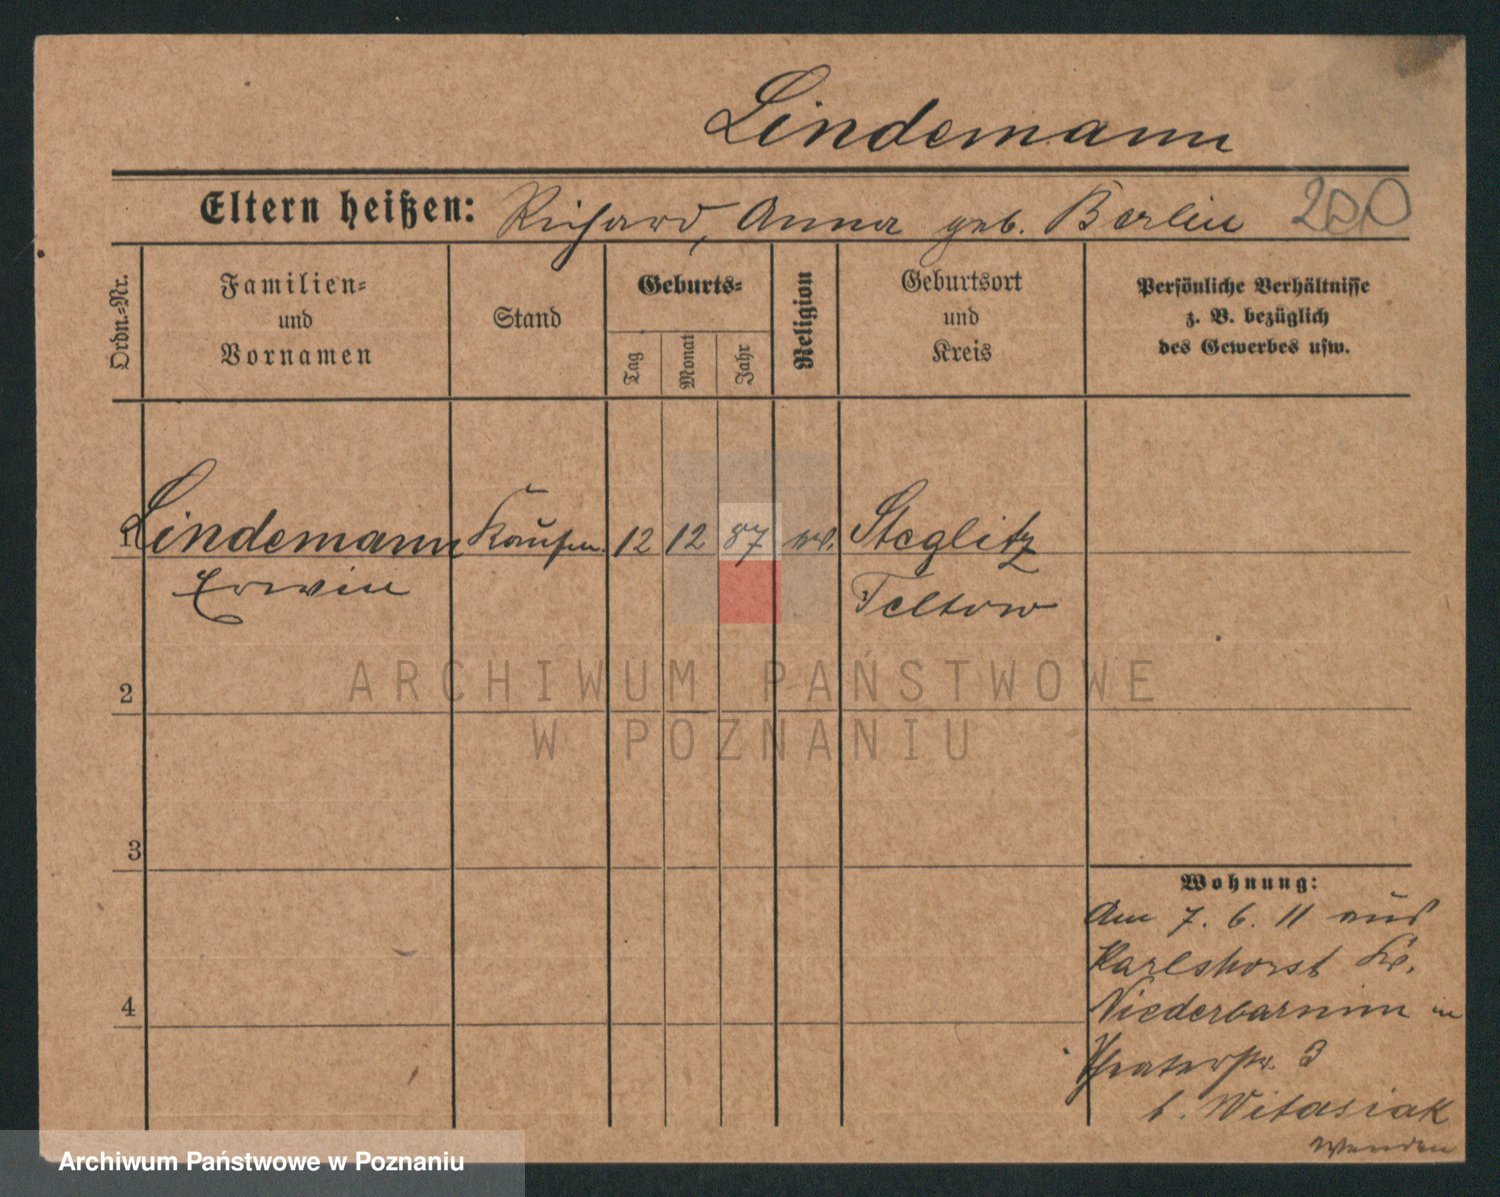 Lindemann
Eltern heißen: Richard, Anna geb. Berlin 200
Ordn.-Nr.
Familien-
und
Vornamen
Stand
Geburts-
Tag
Monat
Jahr
Religion
Geburtsort
und
Kreis
Persönliche Verhältnisse
z. B. bezüglich
des Gewerbes usw.
1 Lindemann Kaufm. 12 12 87 ev. Steglitz
Erwin Teltow
ARCHIWUM PAŃSTWOWE
W POZNANIU
2
3
4
Wohnung:
Am 7. 6. 11 aus
Karlshorst Kr.
Niederbarnim in
Theaterstr. 3
b. Witasiak
Wenden
Archiwum Państwowe w Poznaniu